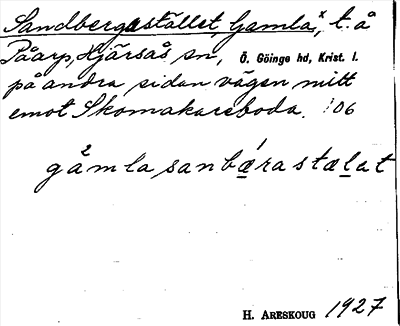 Sandbergastället, Gamla,ˣ t. å
Påarp, Hjärsås sn, Ö. Göinge hd, Krist. l.
på andra sidan vägen mitt
emot Skomakareboda. 06
gåmla sanbæ̲rastæl̲at
H. ARESKOUG 1927